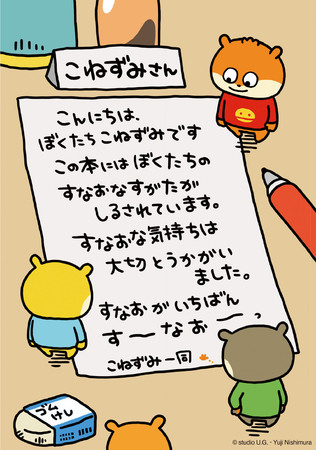 こねずみさん
こんにちは、
ぼくたち こねずみです
この本には ぼくたちの
すなおなすがたが
しるされています。
すなおな気持ちは
大切とうかがい
ました。
すなおがいちばん
すーなぉーっ
こねずみ一同
ゴムけし
© studio U.G. - Yuji Nishimura